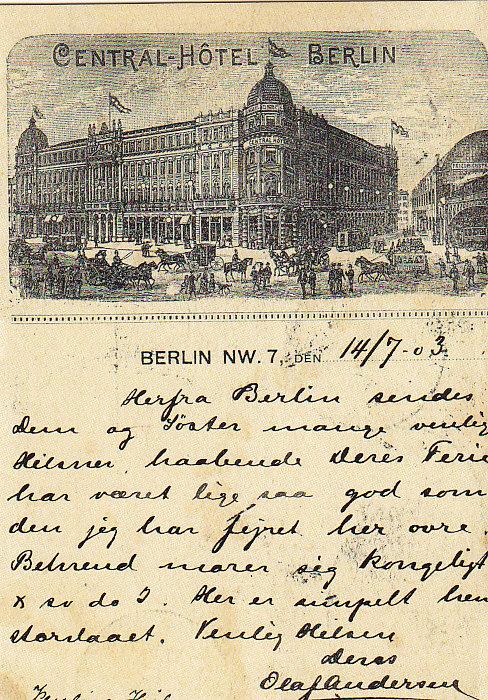 CENTRAL-HÔTEL BERLIN
CENTRAL HOT
BERLIN NW. 7, DEN 14/7-03
Herfra Berlin sendes
Dem og Söster mange venlig
Hilsner, haabende Deres Ferie
har været lige saa god som
den jeg har fejret her ovre.
Behrend morer sig kongeligt
x so do I. Her er simpelt hen
storslaaet. Venlig Hilsen
Deres
Olaf Andersen